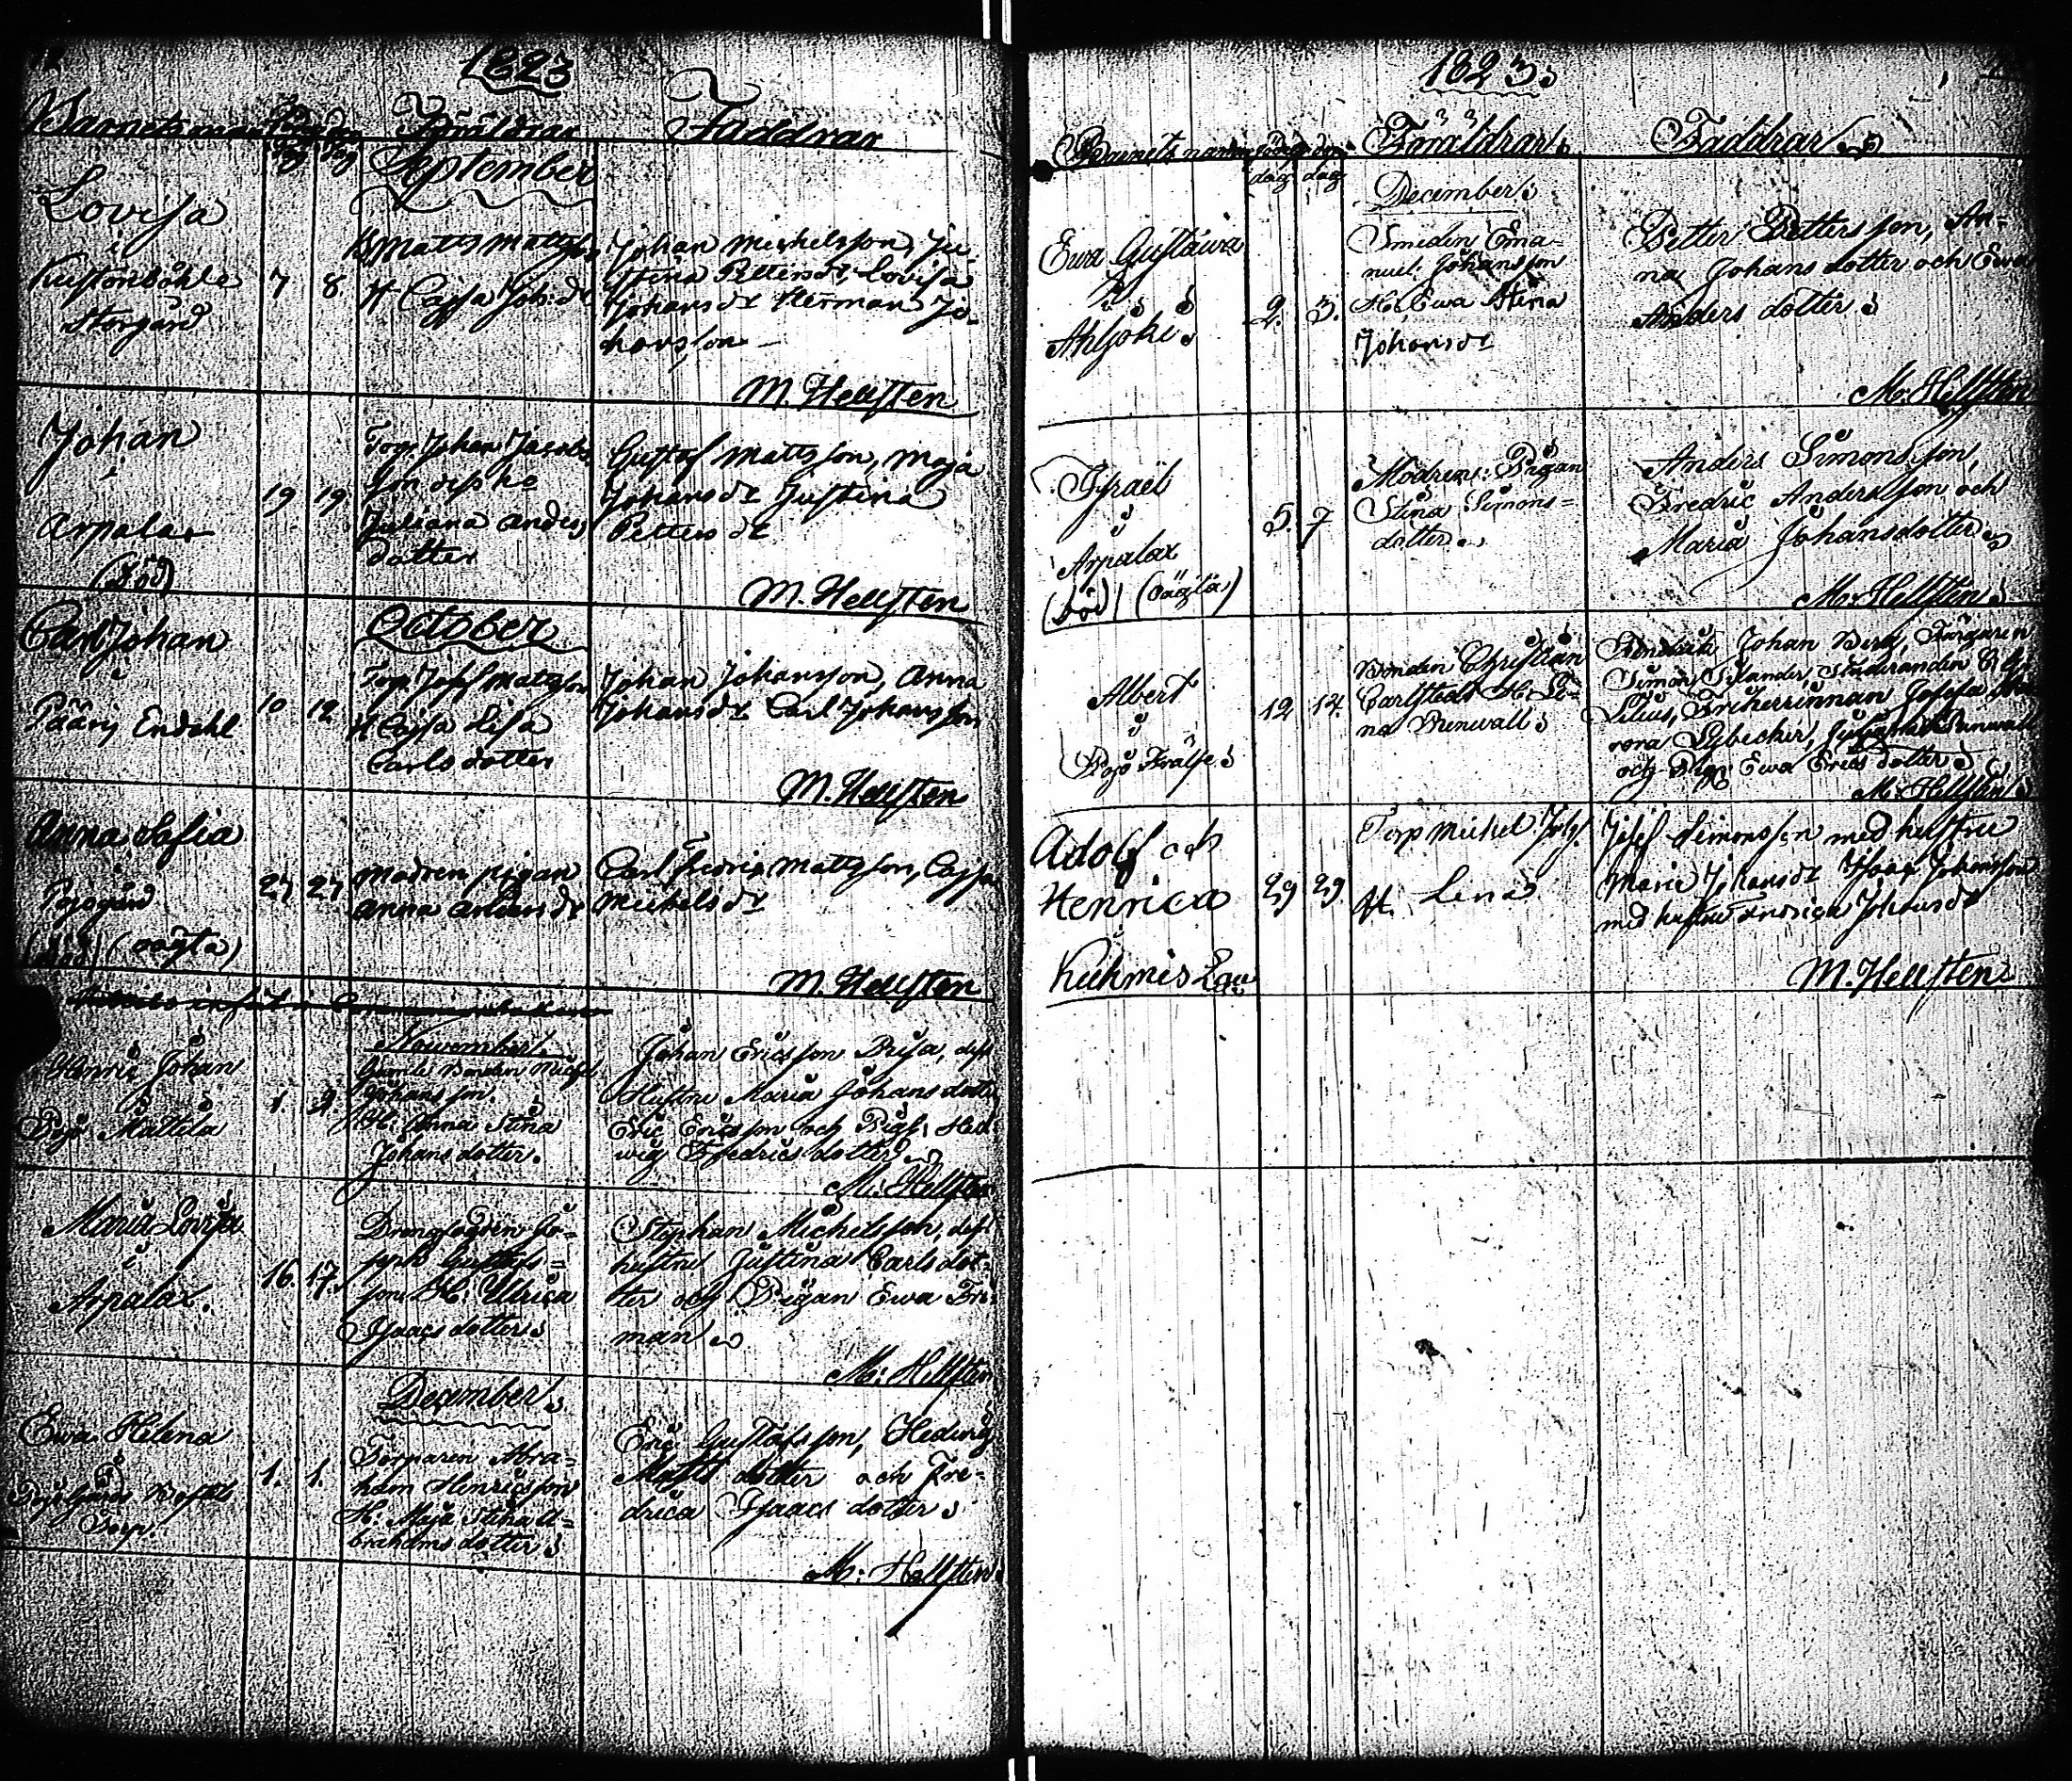 1823
Barnets namn Föd. dag Döp. dag Föräldrar Faddrar
September
Lovisa
i
Storgård
7 8
B Matts Mattsson
H Cajsa Joh:dr
Johan Michelsson, Ju-
stina Pettersdr, Lovisa
Johansdr Herman Jo-
hansson
M. Hellsten
Johan
i
Arpalax
(död)
19 19
Torp. Johan Jacobs
son
Juliana Anders
dotter
Gustaf Mattsson, Maja
Johansdr Justina
Pettersdr
M. Hellsten
October
Carl Johan
i
Pääry
10 12
Torp Josef Mattsson
H Cajsa Lisa
Carlsdotter
Johan Johansson, Anna
Johansdr Carl Johansson
M. Hellsten
Anna Sofia
i
Pojogård
(död) (oägta)
27 27
Modren pigan
Anna Andersdr
Carl Fredric Mattsson, Cajsa
Michelsdr
M. Hellsten
November.
Henric Johan
i
Pojo Mattila
1. 2.
Bonden Michel
Johansson.
H: Anna Stina
Johansdotter.
Johan Ericsson Brisa, dess
Hustru Maria Johansdotter
Eric Ericsson och Pig: Hed-
wig Fredricsdotter
M: Hellsten
Maria Lovisa
i
Arpalax.
16. 17.
Drengen Jo-
seph Gustafs-
son H: Ulrica
Isaacsdotter
Stephan Michelsson, dess
hustru Justina Carlsdot-
ter och Pigan Ewa Fri-
man
M: Hellsten
December
Ewa Helena
i
Torp.
1. 1.
Torparen Abra-
ham Henricsson
H. Maja Stina A-
brahamsdotter
Eric Gustafsson, Hedwig
Matts dotter och Fre-
drica Isaacs dotter
M: Hellsten
1823
Barnets namn Född dag Döp dag Föräldrar Faddrar
December
Ewa Gustawa
i
Ahljoki
2. 3.
Smeden Ema-
nuel Johansson
H: Ewa Stina
Johansdr
Petter Pettersson, An-
na Johansdotter och Ewa
Anders dotter
M: Hellsten
Israël
i
Arpalax
(död) (oägta)
5. 7
Modren: Pigan
Stina Simons-
dotter
Anders Simonsson,
Fredric Andersson och
Maria Johansdotter
M: Hellsten
Albert
i
Pojo Frälse
12 14.
Bonden Christian
Carlstedt H: Lo-
na Brunwall
Johan Berg, Färgaren
Simon Silander Studeranden
Lilius, Friherrinnan Josefa
rora Lybecker, Brunwall
och Pig: Ewa Ericsdotter
M: Hellsten
Adolf och
Henrica
i
29 29.
Torp Michel
H. Lena
Josef Simonsson med hustru
Maria Johansdr Isaac Johansson
med hustru Fredrica Johansdr
M. Hellsten